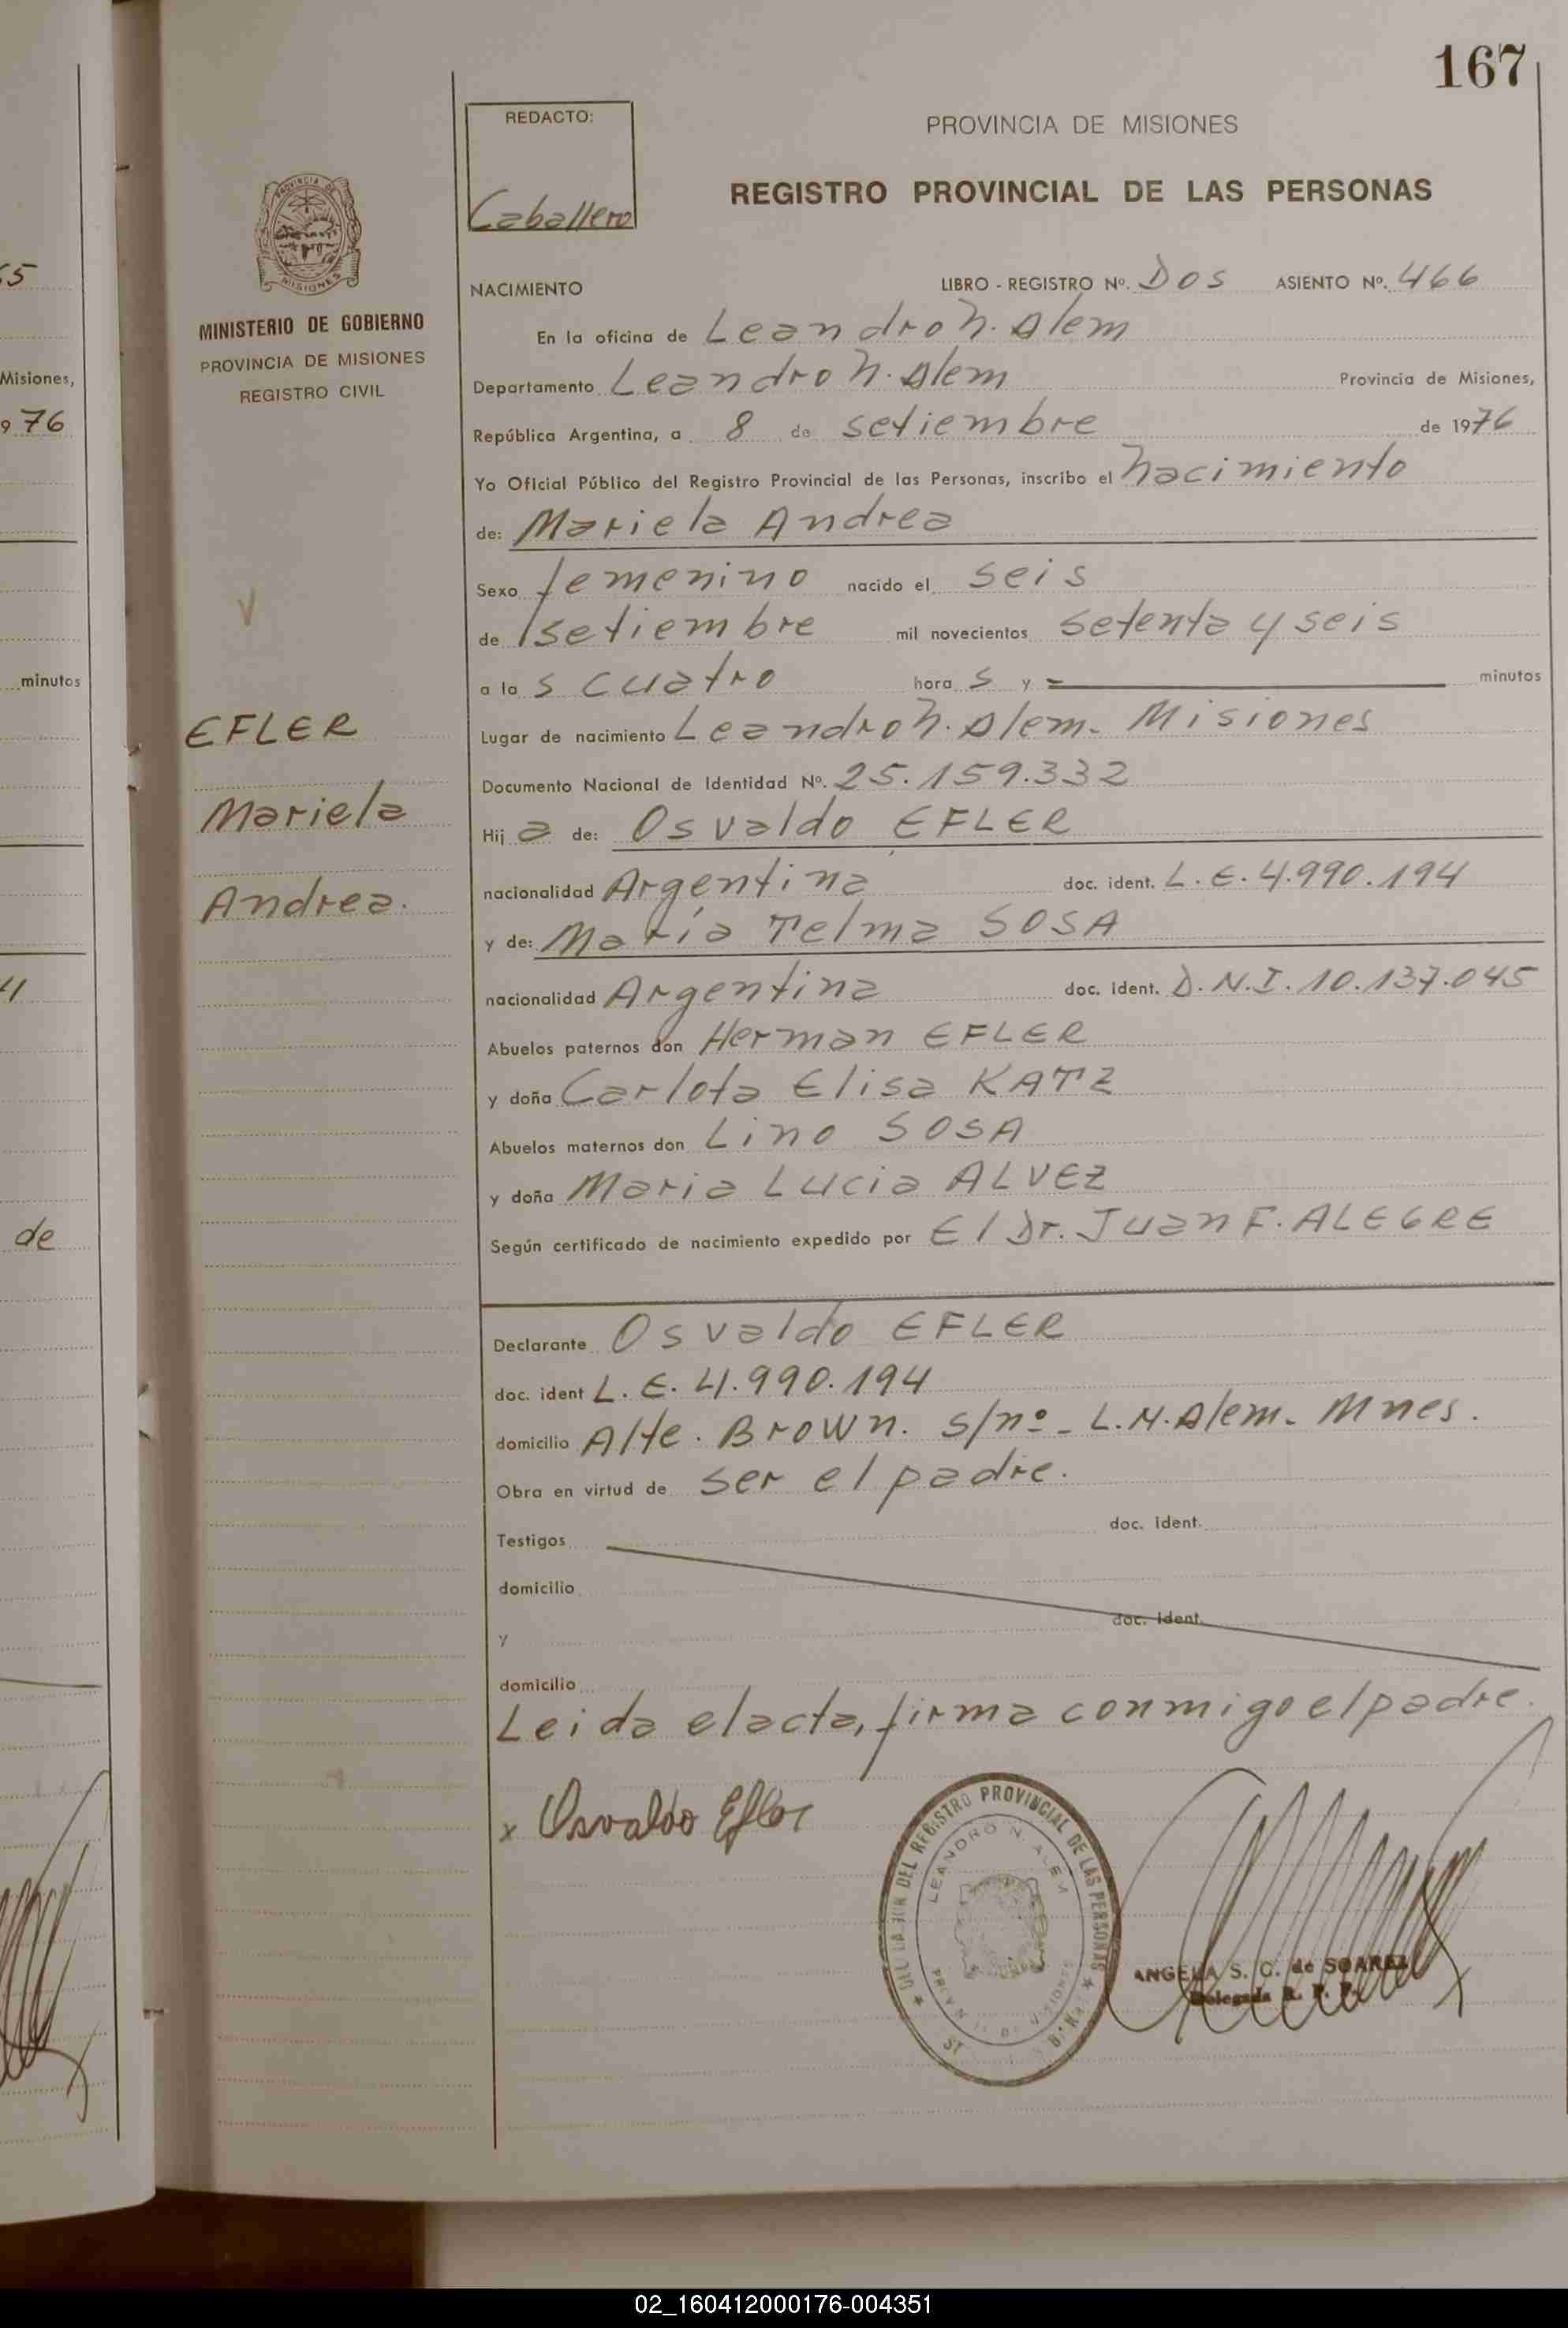 167
REDACTO:
Caballero
PROVINCIA DE MISIONES
REGISTRO PROVINCIAL DE LAS PERSONAS
PROVINCIA DE
MISIONES
MINISTERIO DE GOBIERNO
PROVINCIA DE MISIONES
REGISTRO CIVIL
NACIMIENTO LIBRO - REGISTRO Nº. Dos ASIENTO Nº. 466
En la oficina de Leandro N. Alem
Departamento Leandro N. Alem Provincia de Misiones,
República Argentina, a 8 de setiembre de 1976
Yo Oficial Público del Registro Provincial de las Personas, inscribo el Nacimiento
de: Mariela Andrea
Sexo femenino nacido el seis
de setiembre mil novecientos setenta y seis
a la s cuatro hora s y = minutos
Lugar de nacimiento Leandro N. Alem. Misiones
Documento Nacional de Identidad Nº. 25.159.332
Hij a de: Osvaldo EFLER
nacionalidad Argentina doc. ident. L.E. 4.990.194
y de: María Telma SOSA
nacionalidad Argentina doc. ident. D.N.I. 10.137.045
Abuelos paternos don Herman EFLER
y doña Carlota Elisa KATZ
Abuelos maternos don Lino SOSA
y doña Maria Lucia ALVEZ
Según certificado de nacimiento expedido por El Dr. Juan F. ALEGRE
Declarante Osvaldo EFLER
doc. ident L.E. 4.990.194
domicilio Alte. Brown. s/nº - L.N.Alem. Mnes.
Obra en virtud de ser el padre.
Testigos doc. ident.
domicilio
y doc. ident.
domicilio
Leida el acta, firma conmigo el padre.
x Osvaldo Efler
DEL REGISTRO PROVINCIAL DE LAS PERSONAS
LEANDRO N. ALEM
ANGELA S. G. de SOAREZ
Delegada R. P. P.
EFLER
Mariela
Andrea.
65
Misiones,
9 76
minutos
de
02_160412000176-004351